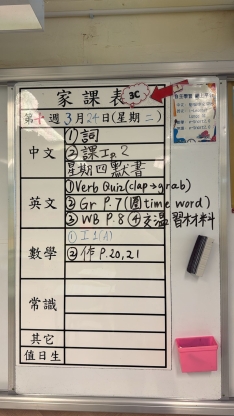 家課表 3C
第十週3月24日(星期二)
中文
①詞
②課工p.2
星期四默書
英文
①Verb Quiz(clap→grab)
②Gr P.7(圈time word)
③WB P.8 ④交温習材料
數學
①工1(A)
②作 P.20,21
常識
其它
值日生